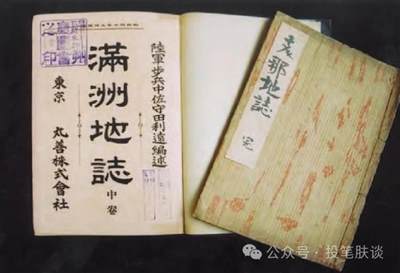 陸軍步兵中佐守田利遠編述
滿洲地誌 中卷
東京 丸善株式會社
支那地誌 完
公众号·投笔肤谈